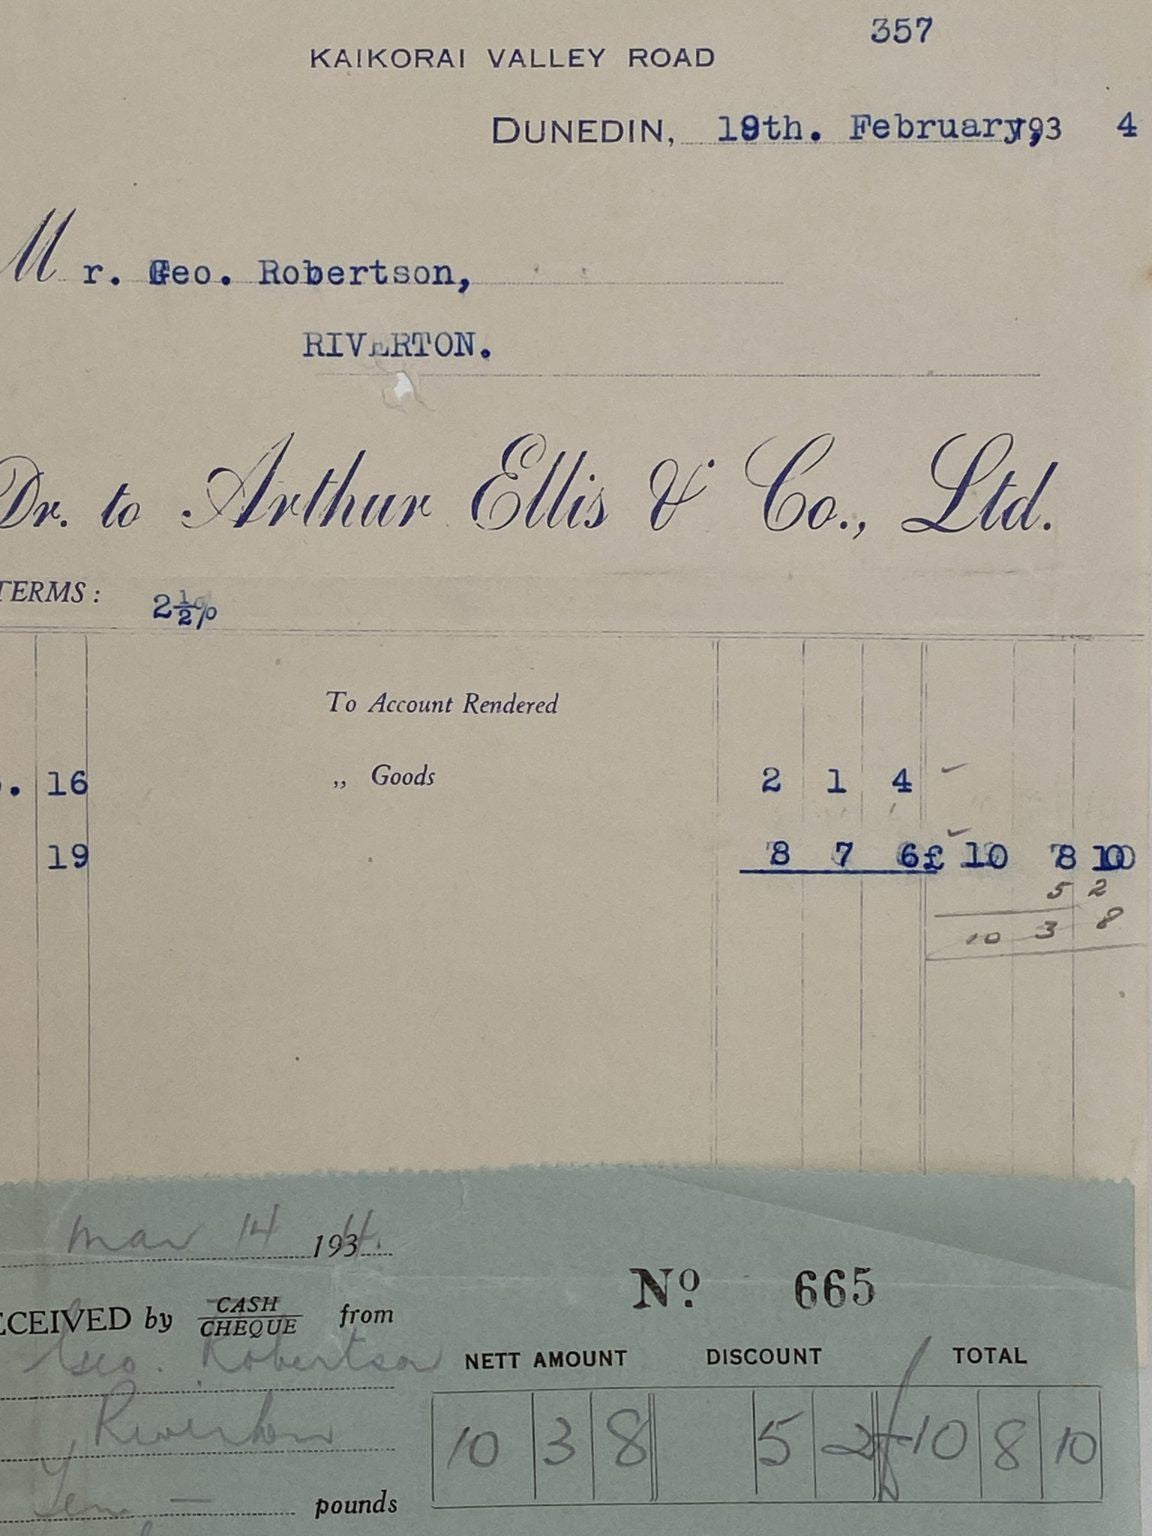 357
KAIKORAI VALLEY ROAD
DUNEDIN, 19th. February, 193 4
Mr. Geo. Robertson,
RIVERTON.
Dr. to Arthur Ellis & Co., Ltd.
TERMS: 2½%
To Account Rendered
. 16 ,, Goods 2 1 4
19 8 7 6 £ 10 8 10
5 2
10 3 8
Mar 14 1934.
No. 665
ECEIVED by CASH
CHEQUE from
Geo. Robertson
NETT AMOUNT DISCOUNT TOTAL
Riverton
10 3 8 5 2 £ 10 8 10
Ten — pounds